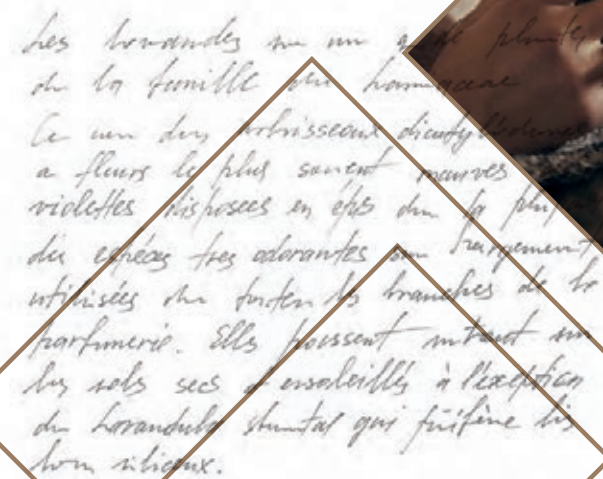 Les lavandes un genre de plantes
de la famille des Lamiaceae
Ce sont des arbrisseaux dicotylédones
a fleurs le plus souvent mauves
violettes disposées en épis dont la plup
des espèces très odorantes sont largement
utilisées dans toutes les branches de la
parfumerie. Elles poussent surtout sur
les sols secs et ensoleillés à l'exception
de Lavandula qui préfère les
siliceux.